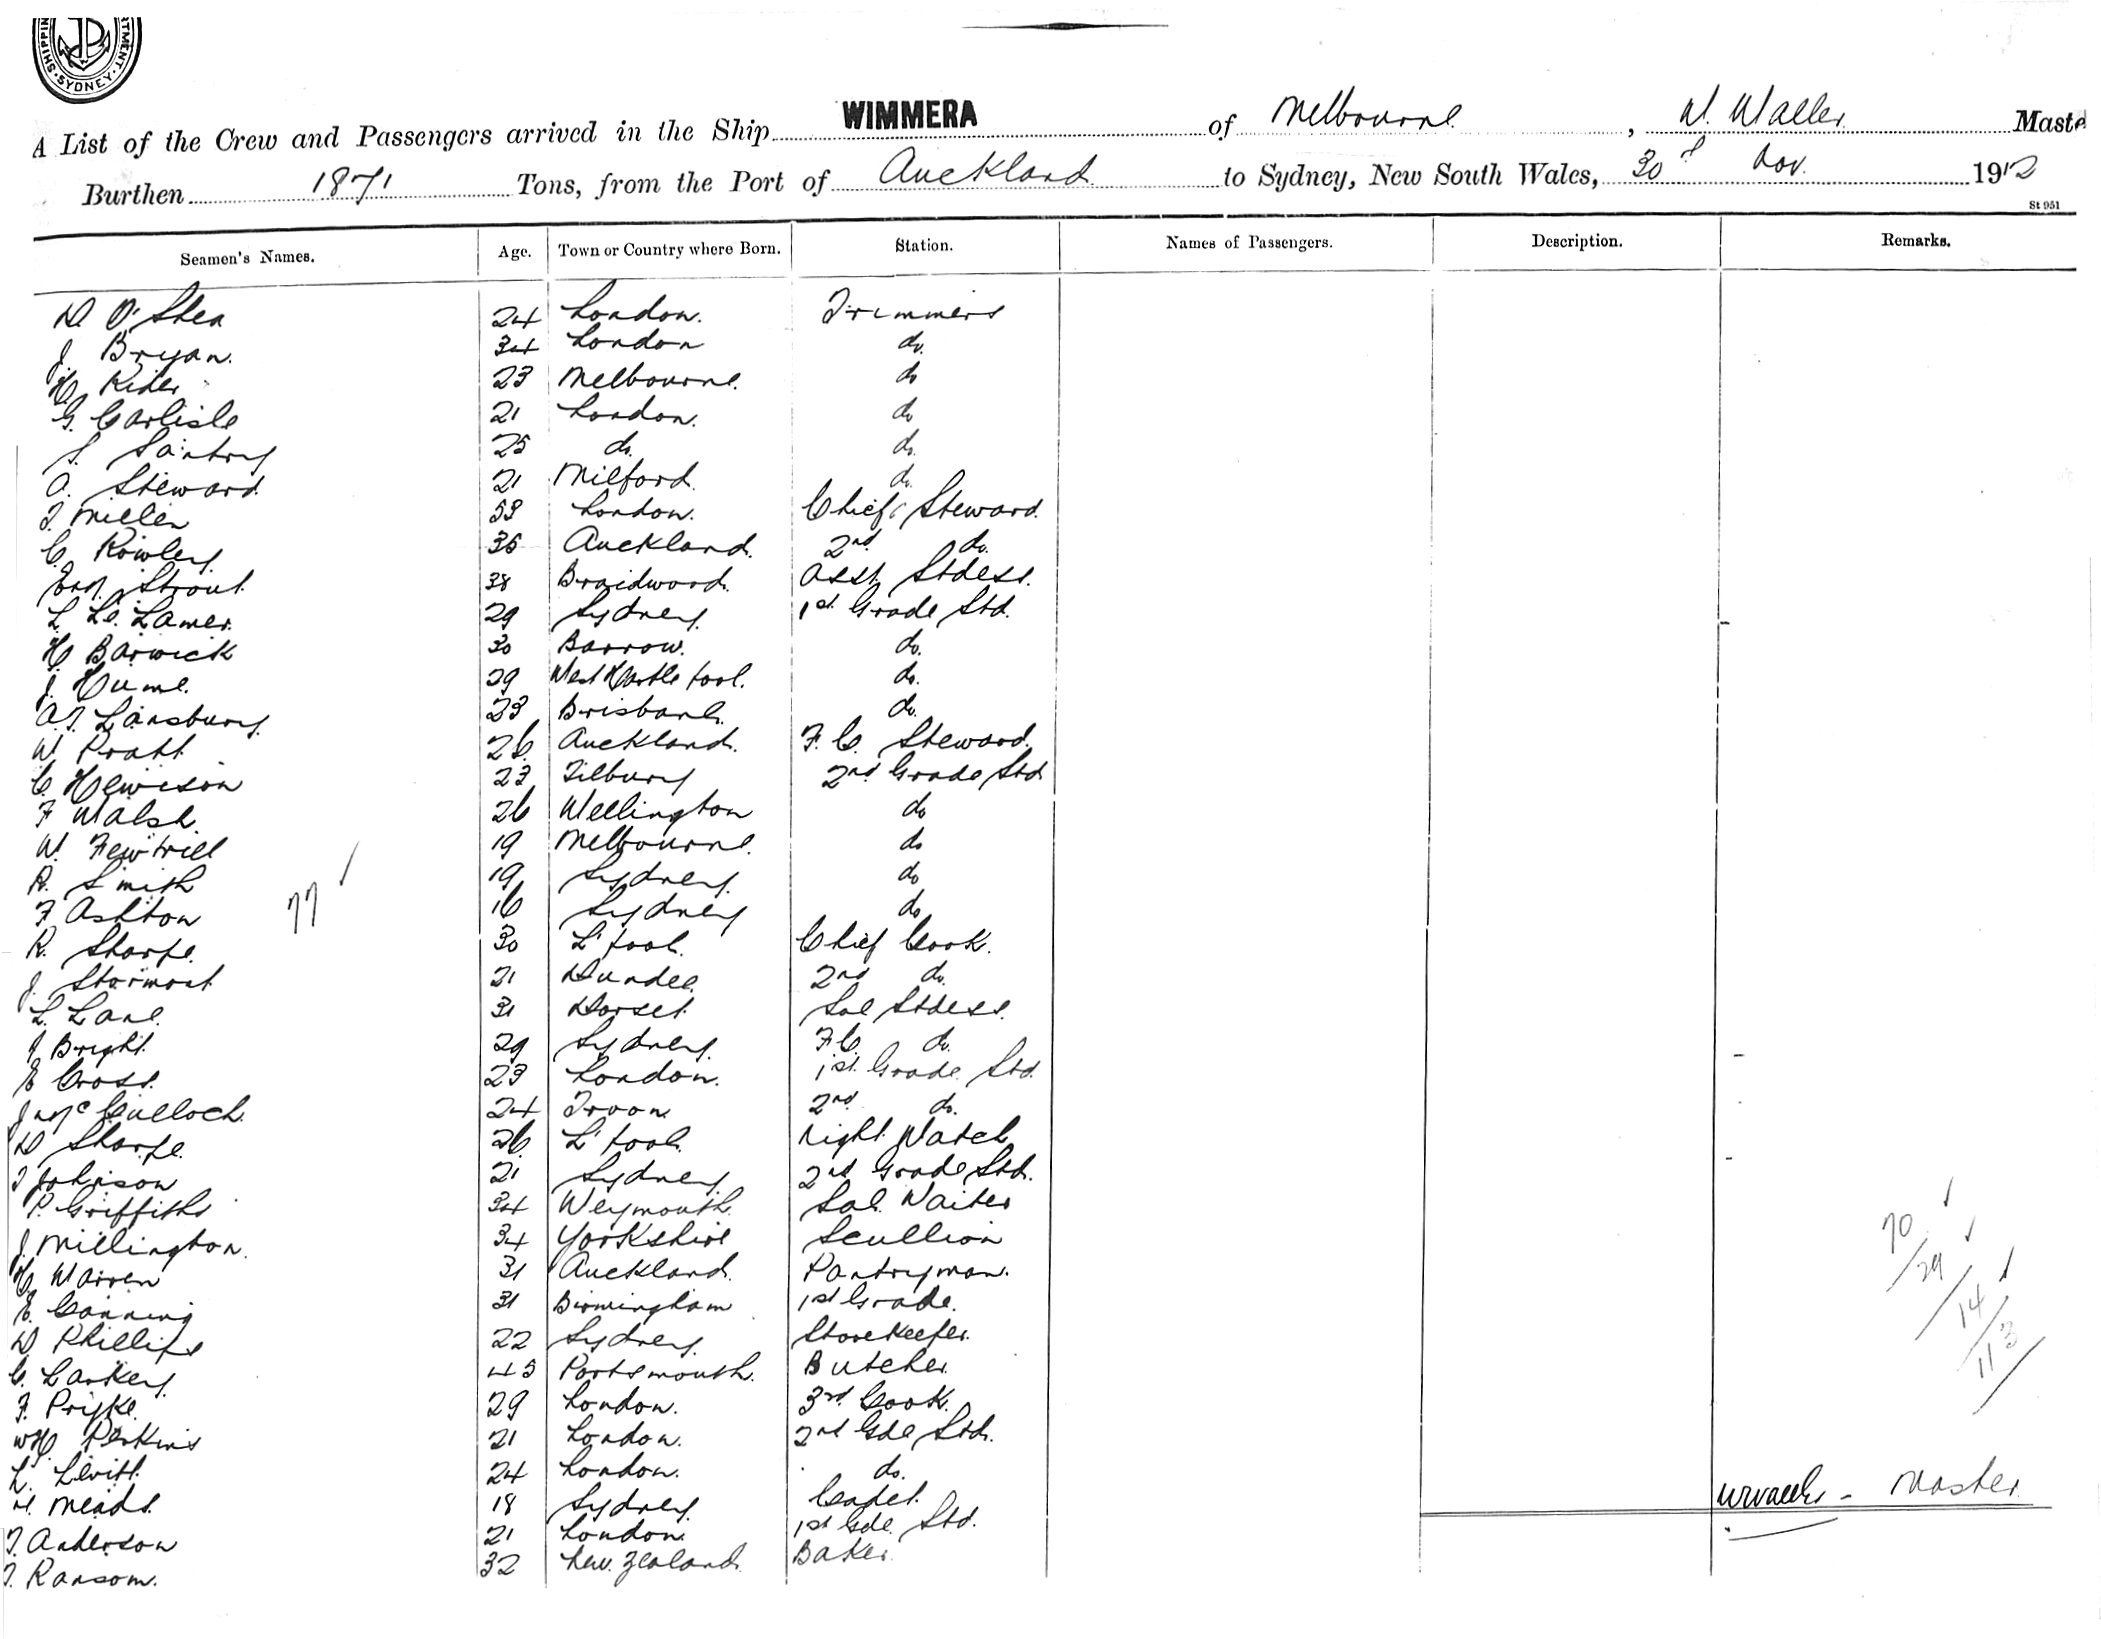 SHIPPIN TMENT · SYDNEY ·
A List of the Crew and Passengers arrived in the Ship WIMMERA of Melbourne, W. Waller Maste
Burthen 1871 Tons, from the Port of Auckland to Sydney, New South Wales, 30th Nov. 1912
St 951
Seamen's Names. Age. Town or Country where Born. Station. Names of Passengers. Description. Remarks.
D. O'Shea 24 London. Trimmers
J. Bryan. 34 London do.
H. Rider 23 Melbourne. do
G. Carlisle 21 London. do
S. Santry 25 do. do.
A. Steward 21 Milford. do.
T. Miller 53 London. Chief Steward.
C. Rowley. 35 Auckland. 2nd do.
Strout. 38 Braidwood. Asst. Stdess.
L. Le. Lamer. 29 Sydney. 1st Grade Std.
H. Barwick 30 Barrow. do.
J. Hume. 29 West Hartle pool. do.
A.J. Lansbury. 23 Brisbane. do.
W. Pratt. 26 Auckland. F. C. Steward.
C. Hewison 23 Tilbury 2nd Grade Std
F Walsh 26 Wellington do
W. Fewtrell 19 Melbourne. do
R. Smith 19 Sydney. do
F Ashton 16 Sydney do
77
R. Sharpe. 30 L'pool. Chief Cook.
J. Stormont 21 Dundee. 2nd do.
L. Lane. 31 Dorset. Sal Stdess.
J Bright. 29 Sydney. F.C. do.
E Cross. 23 London. 1st Grade Std
J McCulloch. 24 Troon 2nd do.
D Sharpe. 26 L'pool. Night Watch
T Johnson 21 Sydney 2nd Grade Std.
P. Griffiths 34 Weymouth. Sal. Waiter
J. Millington. 34 Yorkshire Scullion
H. Warren 31 Auckland. Pantryman.
E. Canning 31 Birmingham 1st Grade.
D. Phillips 22 Sydney. Storekeeper.
C. Larkey. 45 Portsmouth. Butcher.
F. Pryke. 29 London. 3rd Cook.
WH. Perkins 21 London. 2nd Gde Std.
L. Levitt. 24 London. do.
H. Meads. 18 Sydney. Cadet.
T. Anderson 21 London. 1st Gde. Std.
T. Ransom. 32 New Zealand. Baker.
70
29
14
113
W Waller - Master